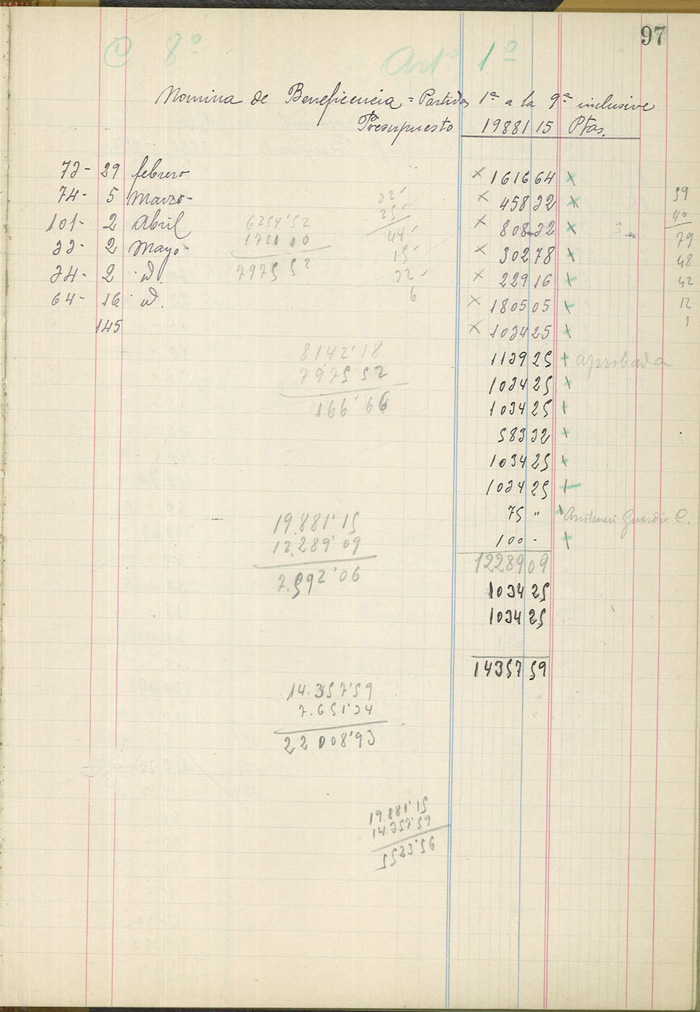 97
C 8º Artº 1º
Nomina de Beneficencia = Partidas 1ª a la 9ª inclusive
Presupuesto 19881 15 Ptas.
73- 29 febrero × 1616 64 ×
74- 5 Marzo- 32- × 458 32 × 39
101- 2 Abril 6254'52 25- × 808 32 × 40
1721 00 44- 79
33- 2 Mayo- 15- × 302 78 × 48
34- 2 id. 7975 52 32- × 229 16 × 42
64- 16 id. 6 × 1805 05 × 12
145 × 1034 25 × 1
8142'18 1139 25 + aprobada
7975 52 1034 25 +
166'66 1034 25 +
583 32 +
1034 25 +
1034 25 +
19.881'15 75 " × Guardia C.
12.289'09 100 - +
7.592'06 12289 09
1034 25
1034 25
14357 59
14.357'59
7.651'34
22 008'93
19.881'15
14.357'59
5523'56